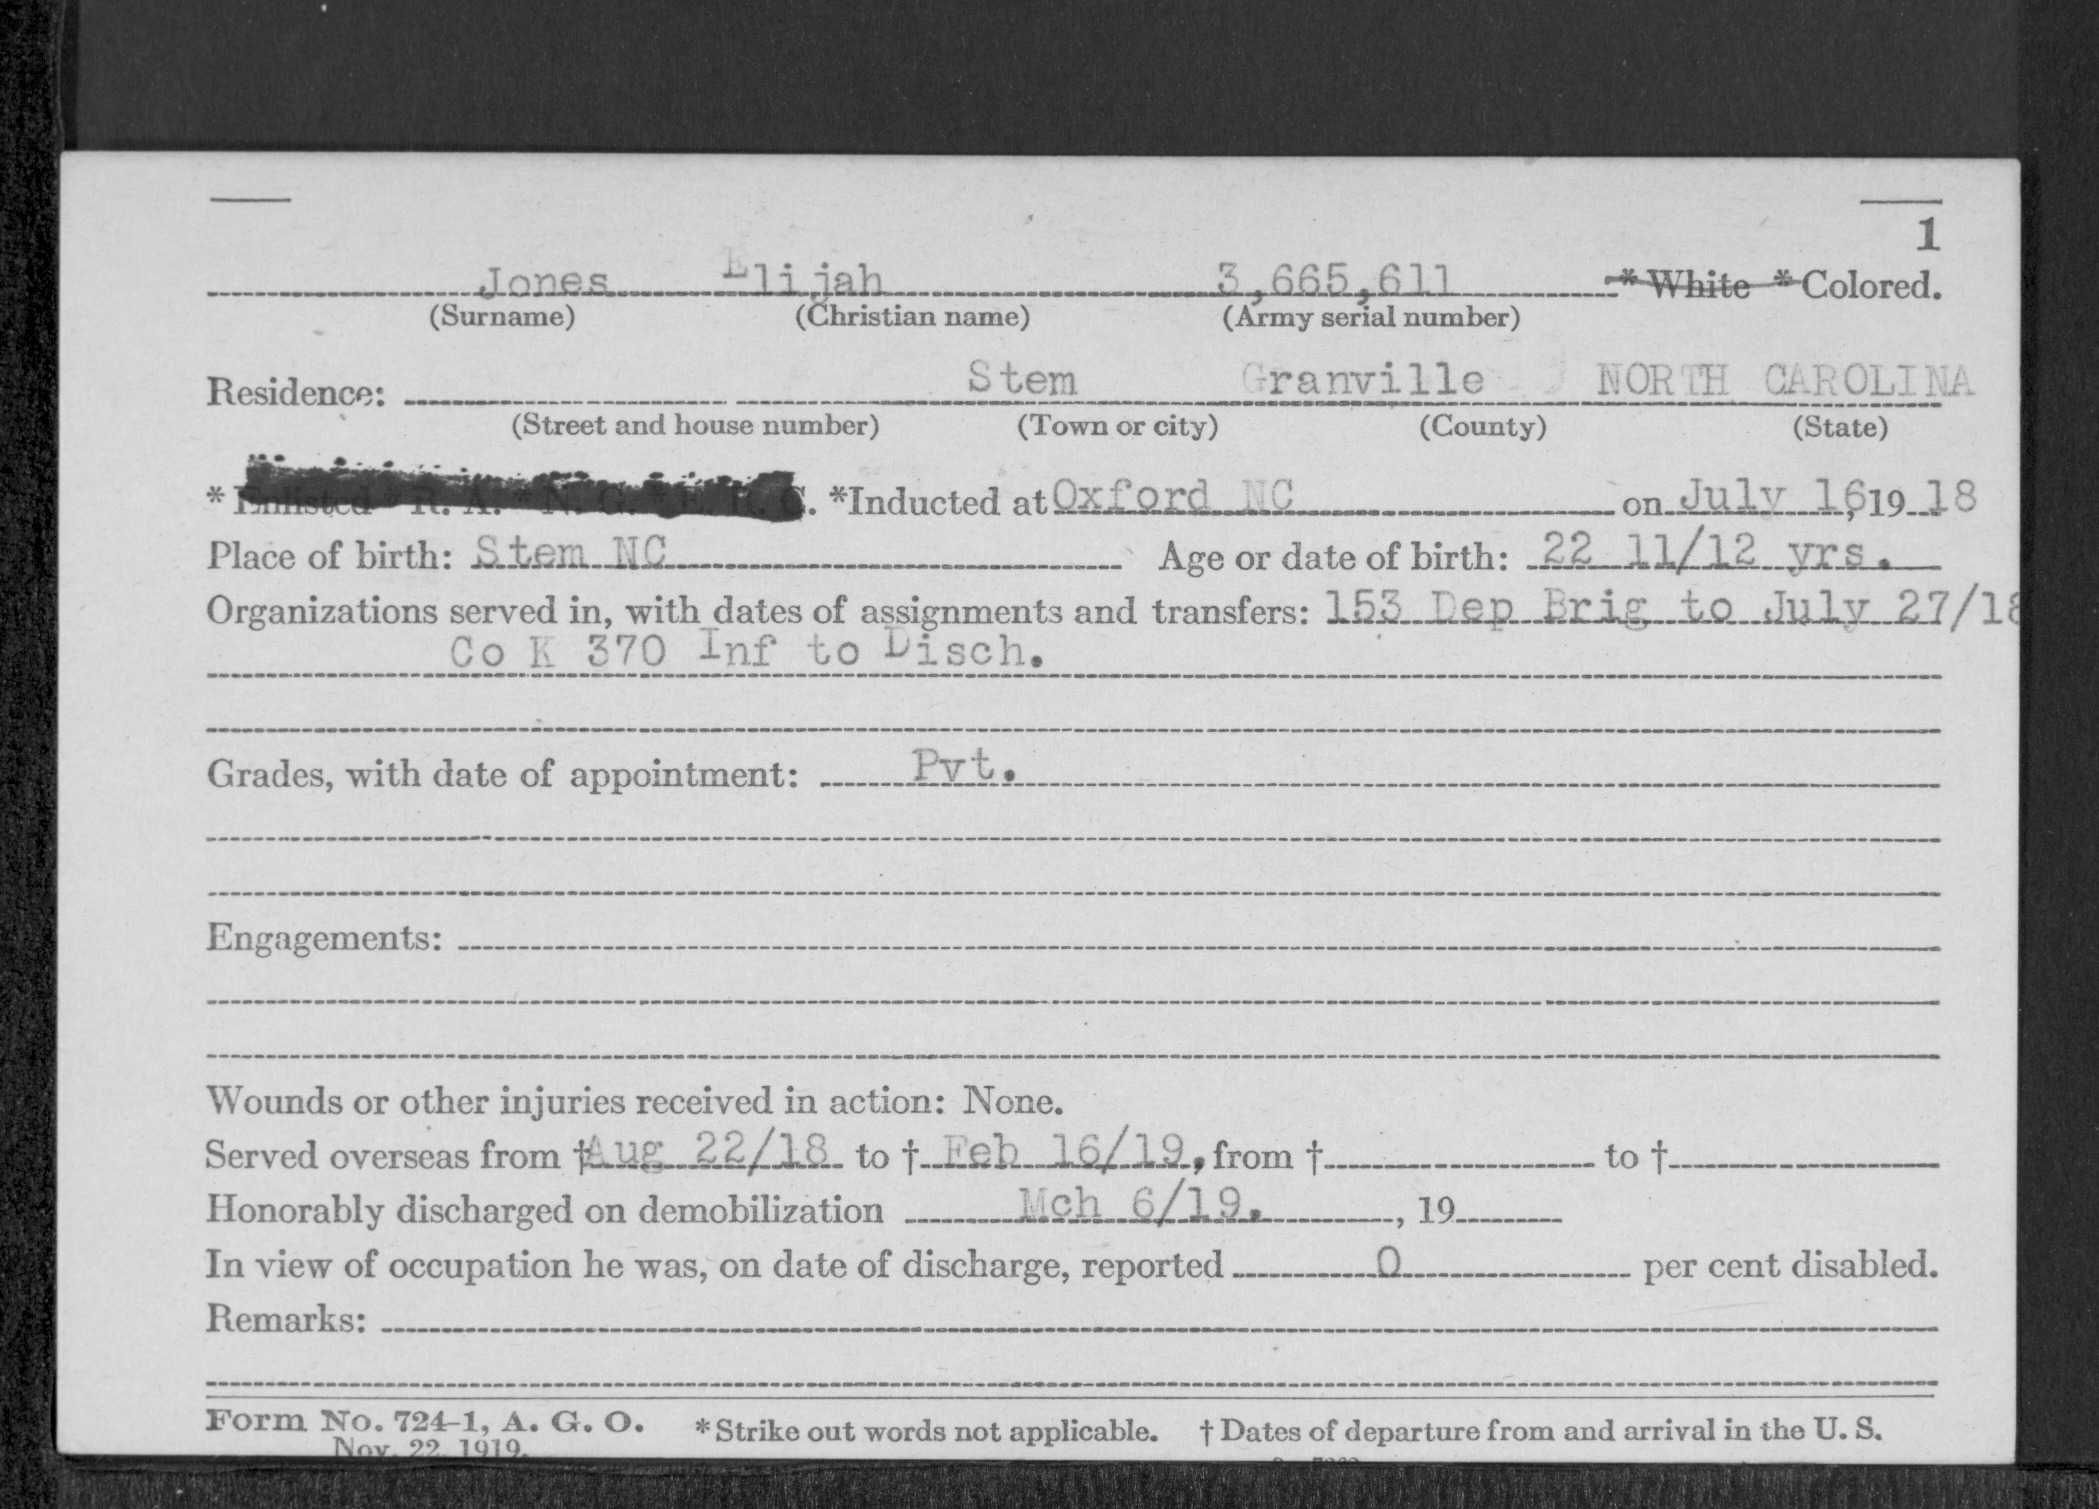 1
Jones Elijah 3,665,611 * White * Colored.
(Surname) (Christian name) (Army serial number)
Residence: Stem Granville NORTH CAROLINA
(Street and house number) (Town or city) (County) (State)
* Enlisted * R. A. * N. G. * E. R. C. *Inducted at Oxford NC on July 16, 19 18
Place of birth: Stem NC Age or date of birth: 22 11/12 yrs.
Organizations served in, with dates of assignments and transfers: 153 Dep Brig to July 27/18
Co K 370 Inf to Disch.
Grades, with date of appointment: Pvt.
Engagements:
Wounds or other injuries received in action: None.
Served overseas from † Aug 22/18 to † Feb 16/19, from † to †
Honorably discharged on demobilization Mch 6/19. , 19
In view of occupation he was, on date of discharge, reported 0 per cent disabled.
Remarks:
Form No. 724-1, A. G. O. * Strike out words not applicable. † Dates of departure from and arrival in the U. S.
Nov. 22, 1919.